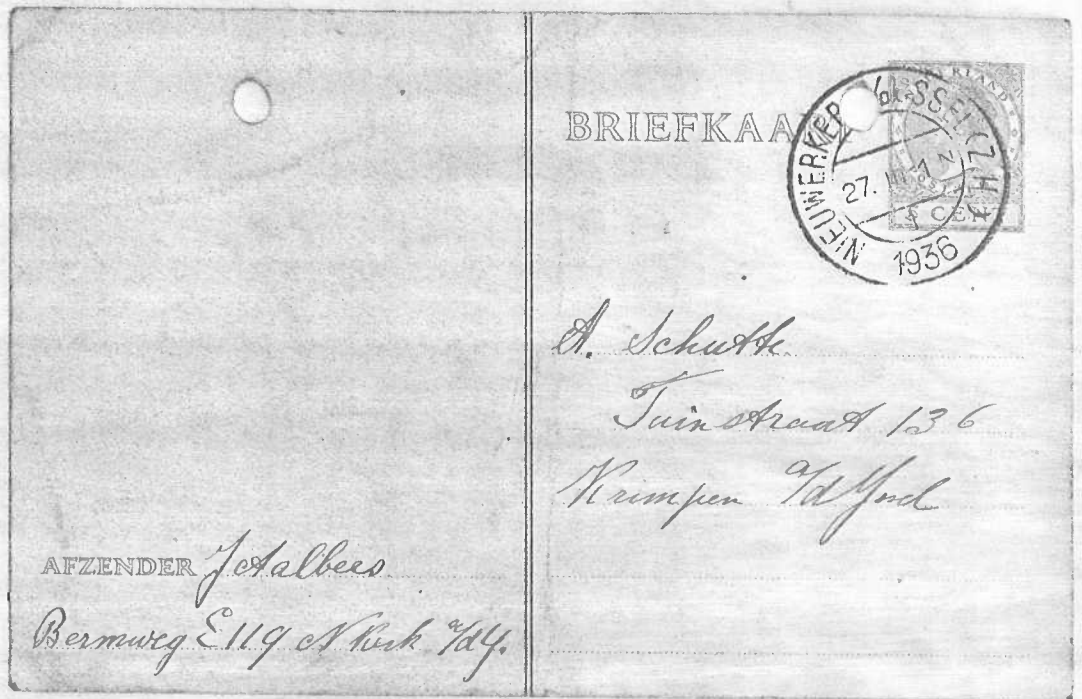 BRIEFKAA
NIEUWERKERK a/d IJSSEL (ZH)
27. III 1 N
1936
NEDERLAND
5 CENT
A. Schutte
Tuinstraat 136
Krimpen a/d Yssel
AFZENDER J Aalbers
Bermweg E 119 N Kerk a/d Y.